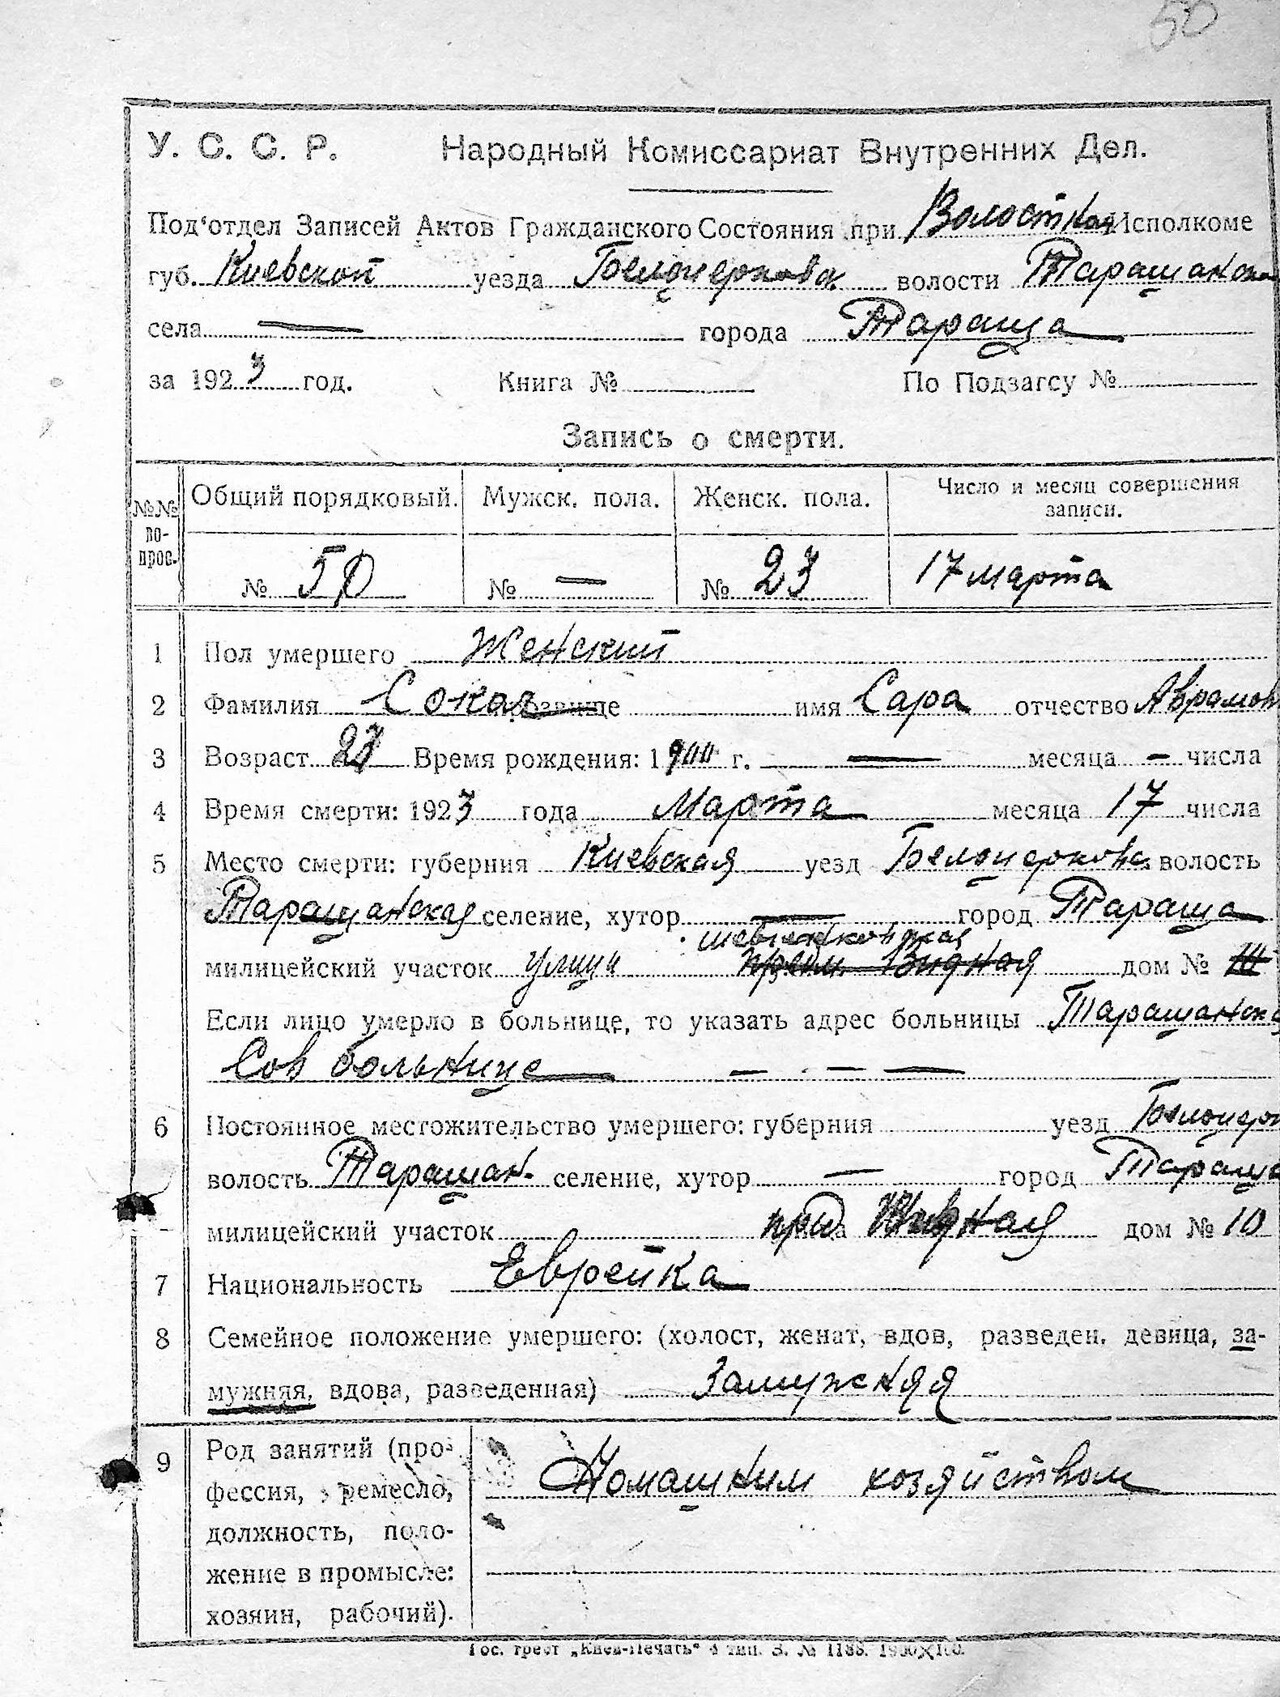 50
У. С. С. Р. Народный Комиссариат Внутренних Дел.
Под'отдел Записей Актов Гражданского Состояния при Волостном Исполкоме
губ. Киевской уезда Белоцерковск волости Таращанской
села — города Тараща
за 1923 год. Книга № По Подзагсу №
Запись о смерти.
№№ вопрос. Общий порядковый. Мужск. пола. Женск. пола. Число и месяц совершения записи.
№ 50 № — № 23 17 марта
1 Пол умершего Женский
2 Фамилия Сокол прозвище имя Сара отчество Аврамов
3 Возраст 23 Время рождения: 1900 г. — месяца — числа
4 Время смерти: 1923 года Марта месяца 17 числа
5 Место смерти: губерния Киевская уезд Белоцерковск волость
Таращанская селение, хутор — город Тараща
Шевченковская
милицейский участок улица дом №
Если лицо умерло в больнице, то указать адрес больницы Таращанска
Сов больнице — — —
6 Постоянное местожительство умершего: губерния уезд Белоцерк
волость Таращан. селение, хутор — город Тараща
милицейский участок дом № 10
7 Национальность Еврейка
8 Семейное положение умершего: (холост, женат, вдов, разведен, девица, за-
мужняя, вдова, разведенная) Замужняя
9 Род занятий (про-
фессия, ремесло, Домашним хозяйством
должность, поло-
жение в промысле:
хозяин, рабочий).
Гос. трест „Киев-Печать" 4 тип. З. № 1188.